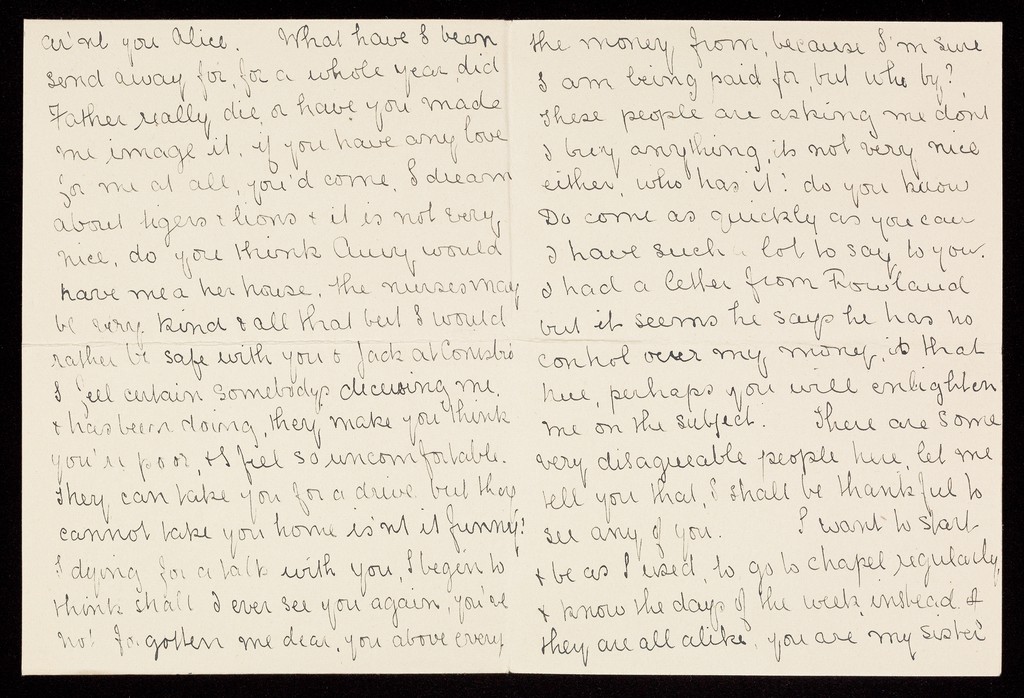 ai'nt you Alice. What have I been
send away for, for a whole year, did
Father really die, or have you made
me image it. if you have any love
for me at all, you'd come, I dream
about tigers & lions & it is not very
nice, do you think would
have me a her house. the nurses may
be very kind & all that but I would
rather be safe with you & Jack at
I feel certain somebodys deceiving me
& has been doing, they make you think
you're poor, & I feel so uncomfortable.
They can take you for a drive but they
cannot take you home is'nt it funny!
I dying for a talk with you, I begin to
think shall I ever see you again, you've
not forgotten me dear, you above every
the money from, because I'm sure
I am being paid for, but who by?
These people are asking me dont
I buy anything, its not very nice
either, who has it! do you know
Do come as quickly as you can
I have such a lot to say, to you.
I had a letter from Rowland
but it seems he says he has no
control over my money, is that
true, perhaps you will enlighten
me on the subject. There are some
very disagreeable people here, let me
tell you that, I shall be thankful to
see any of you. I want to start
& be as I used, to go to chapel regularly,
& know the days of the week, instead of
they are all alike, you are my sister